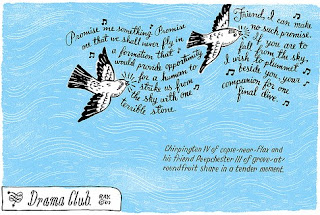 Promise me something. Promise
me that we shall never fly in
a formation that
would provide opportunity
for a human to
strike us from
the sky with one
terrible stone.
Friend, I can make
no such promise.
If you are to
fall from the sky,
I wish to plummet
beside you, your
companion for one
final dive.
Chirpington IV of copse-near-flax and
his friend Peepchester III of grove-at/
roundfruit share in a tender moment.
Drama Club.